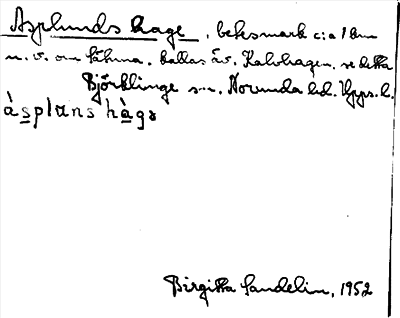 Asplunds hage, beksmark c:a 1 km
n.v. om Sätuna, kallas äv. Kalvhagen, se detta
Björklinge sn, Norunda hd. Upps. l.
àsplɯns hàgə
Birgitta Sandelin, 1952